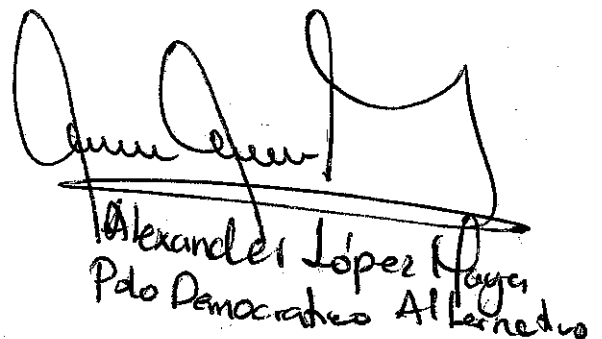 Alexander López Maya
Polo Democratico Alternativo